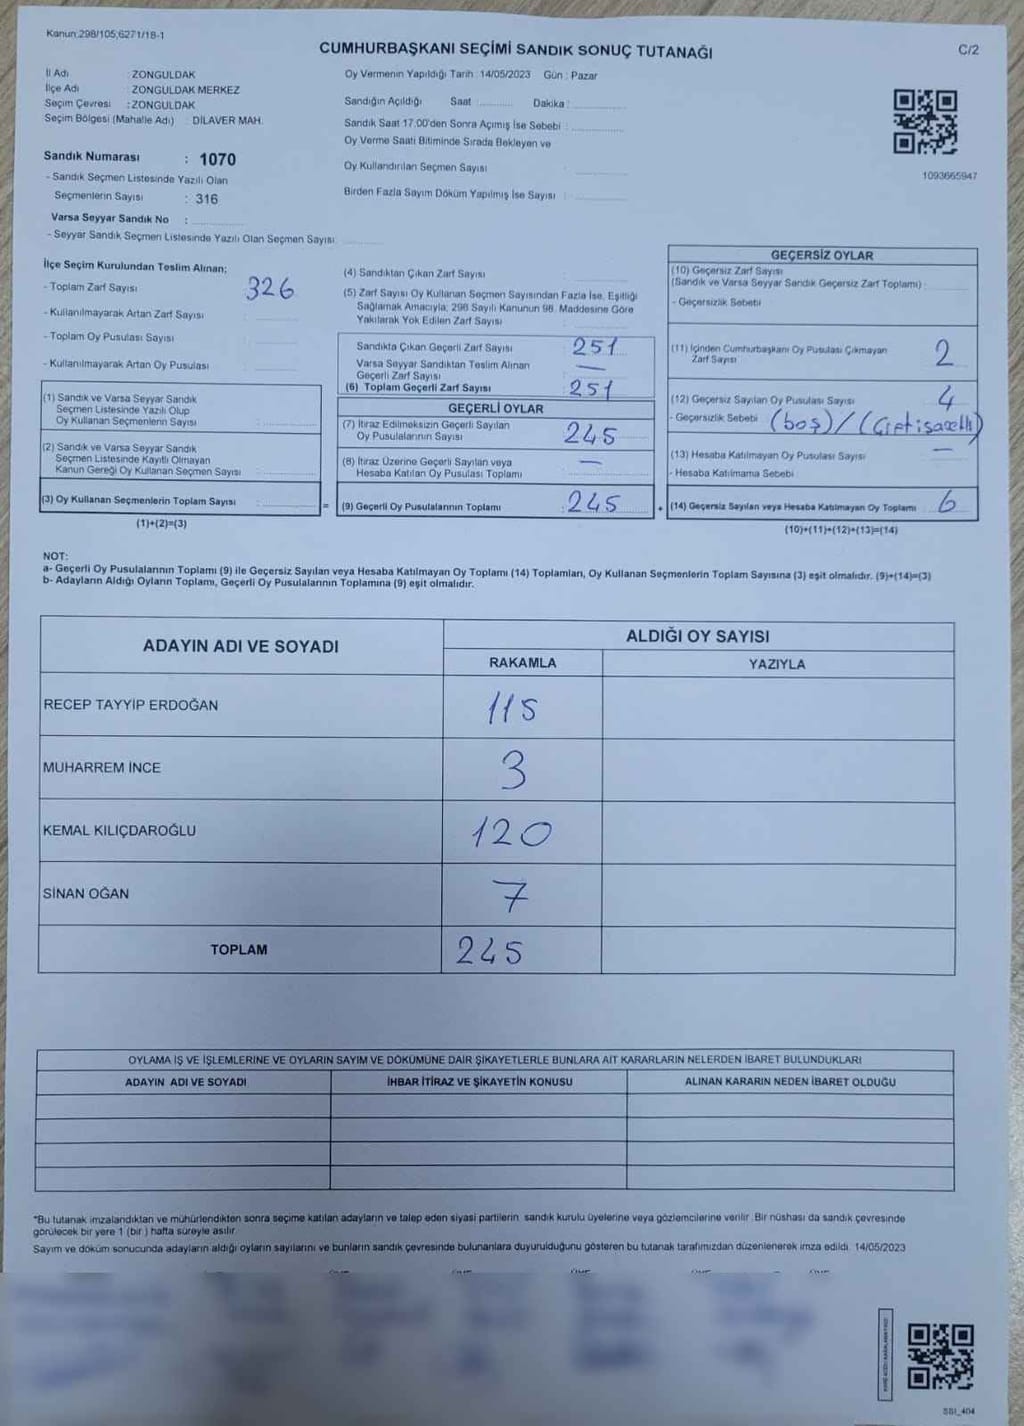 Kanun:298/105;6271/18-1
CUMHURBAŞKANI SEÇİMİ SANDIK SONUÇ TUTANAĞI
C/2
İl Adı : ZONGULDAK
İlçe Adı : ZONGULDAK MERKEZ
Seçim Çevresi : ZONGULDAK
Seçim Bölgesi (Mahalle Adı) : DİLAVER MAH.
Sandık Numarası : 1070
- Sandık Seçmen Listesinde Yazılı Olan
Seçmenlerin Sayısı : 316
Varsa Seyyar Sandık No :
- Seyyar Sandık Seçmen Listesinde Yazılı Olan Seçmen Sayısı:
Oy Vermenin Yapıldığı Tarih: 14/05/2023 Gün : Pazar
Sandığın Açıldığı Saat : Dakika :
Sandık Saat 17.00'den Sonra Açımış İse Sebebi :
Oy Verme Saati Bitiminde Sırada Bekleyen ve
Oy Kullandırılan Seçmen Sayısı :
Birden Fazla Sayım Döküm Yapılmış İse Sayısı :
1093665947
İlçe Seçim Kurulundan Teslim Alınan;
- Toplam Zarf Sayısı : 326
- Kullanılmayarak Artan Zarf Sayısı :
- Toplam Oy Pusulası Sayısı :
- Kullanılmayarak Artan Oy Pusulası :
(1) Sandık ve Varsa Seyyar Sandık
Seçmen Listesinde Yazılı Olup
Oy Kullanan Seçmenlerin Sayısı :
(2) Sandık ve Varsa Seyyar Sandık
Seçmen Listesinde Kayıtlı Olmayan
Kanun Gereği Oy Kullanan Seçmen Sayısı :
(3) Oy Kullanan Seçmenlerin Toplam Sayısı : =
(1)+(2)=(3)
(4) Sandıktan Çıkan Zarf Sayısı :
(5) Zarf Sayısı Oy Kullanan Seçmen Sayısından Fazla İse, Eşitliği
Sağlamak Amacıyla; 298 Sayılı Kanunun 98. Maddesine Göre
Yakılarak Yok Edilen Zarf Sayısı :
Sandıkta Çıkan Geçerli Zarf Sayısı : 251
Varsa Seyyar Sandıktan Teslim Alınan
Geçerli Zarf Sayısı : —
(6) Toplam Geçerli Zarf Sayısı : 251
GEÇERLİ OYLAR
(7) İtiraz Edilmeksizin Geçerli Sayılan
Oy Pusulalarının Sayısı : 245
(8) İtiraz Üzerine Geçerli Sayılan veya
Hesaba Katılan Oy Pusulası Toplamı : —
(9) Geçerli Oy Pusulalarının Toplamı : 245 +
GEÇERSİZ OYLAR
(10) Geçersiz Zarf Sayısı
(Sandık ve Varsa Seyyar Sandık Geçersiz Zarf Toplamı) :
- Geçersizlik Sebebi :
(11) İçinden Cumhurbaşkanı Oy Pusulası Çıkmayan
Zarf Sayısı : 2
(12) Geçersiz Sayılan Oy Pusulası Sayısı : 4
- Geçersizlik Sebebi : (boş)/(Çift işaretli)
(13) Hesaba Katılmayan Oy Pusulası Sayısı : —
- Hesaba Katılmama Sebebi :
(14) Geçersiz Sayılan veya Hesaba Katılmayan Oy Toplamı : 6
(10)+(11)+(12)+(13)=(14)
NOT:
a- Geçerli Oy Pusulalarının Toplamı (9) ile Geçersiz Sayılan veya Hesaba Katılmayan Oy Toplamı (14) Toplamları, Oy Kullanan Seçmenlerin Toplam Sayısına (3) eşit olmalıdır. (9)+(14)=(3)
b- Adayların Aldığı Oyların Toplamı, Geçerli Oy Pusulalarının Toplamına (9) eşit olmalıdır.
ADAYIN ADI VE SOYADI
ALDIĞI OY SAYISI
RAKAMLA YAZIYLA
RECEP TAYYİP ERDOĞAN 115
MUHARREM İNCE 3
KEMAL KILIÇDAROĞLU 120
SİNAN OĞAN 7
TOPLAM 245
OYLAMA İŞ VE İŞLEMLERİNE VE OYLARIN SAYIM VE DÖKÜMÜNE DAİR ŞİKAYETLERLE BUNLARA AİT KARARLARIN NELERDEN İBARET BULUNDUKLARI
ADAYIN ADI VE SOYADI İHBAR İTİRAZ VE ŞİKAYETİN KONUSU ALINAN KARARIN NEDEN İBARET OLDUĞU
*Bu tutanak imzalandıktan ve mühürlendikten sonra seçime katılan adayların ve talep eden siyasi partilerin sandık kurulu üyelerine veya gözlemcilerine verilir. Bir nüshası da sandık çevresinde
görülecek bir yere 1 (bir ) hafta süreyle asılır.
Sayım ve döküm sonucunda adayların aldığı oyların sayılarını ve bunların sandık çevresinde bulunanlara duyurulduğunu gösteren bu tutanak tarafımızdan düzenlenerek imza edildi. 14/05/2023
SSI_404